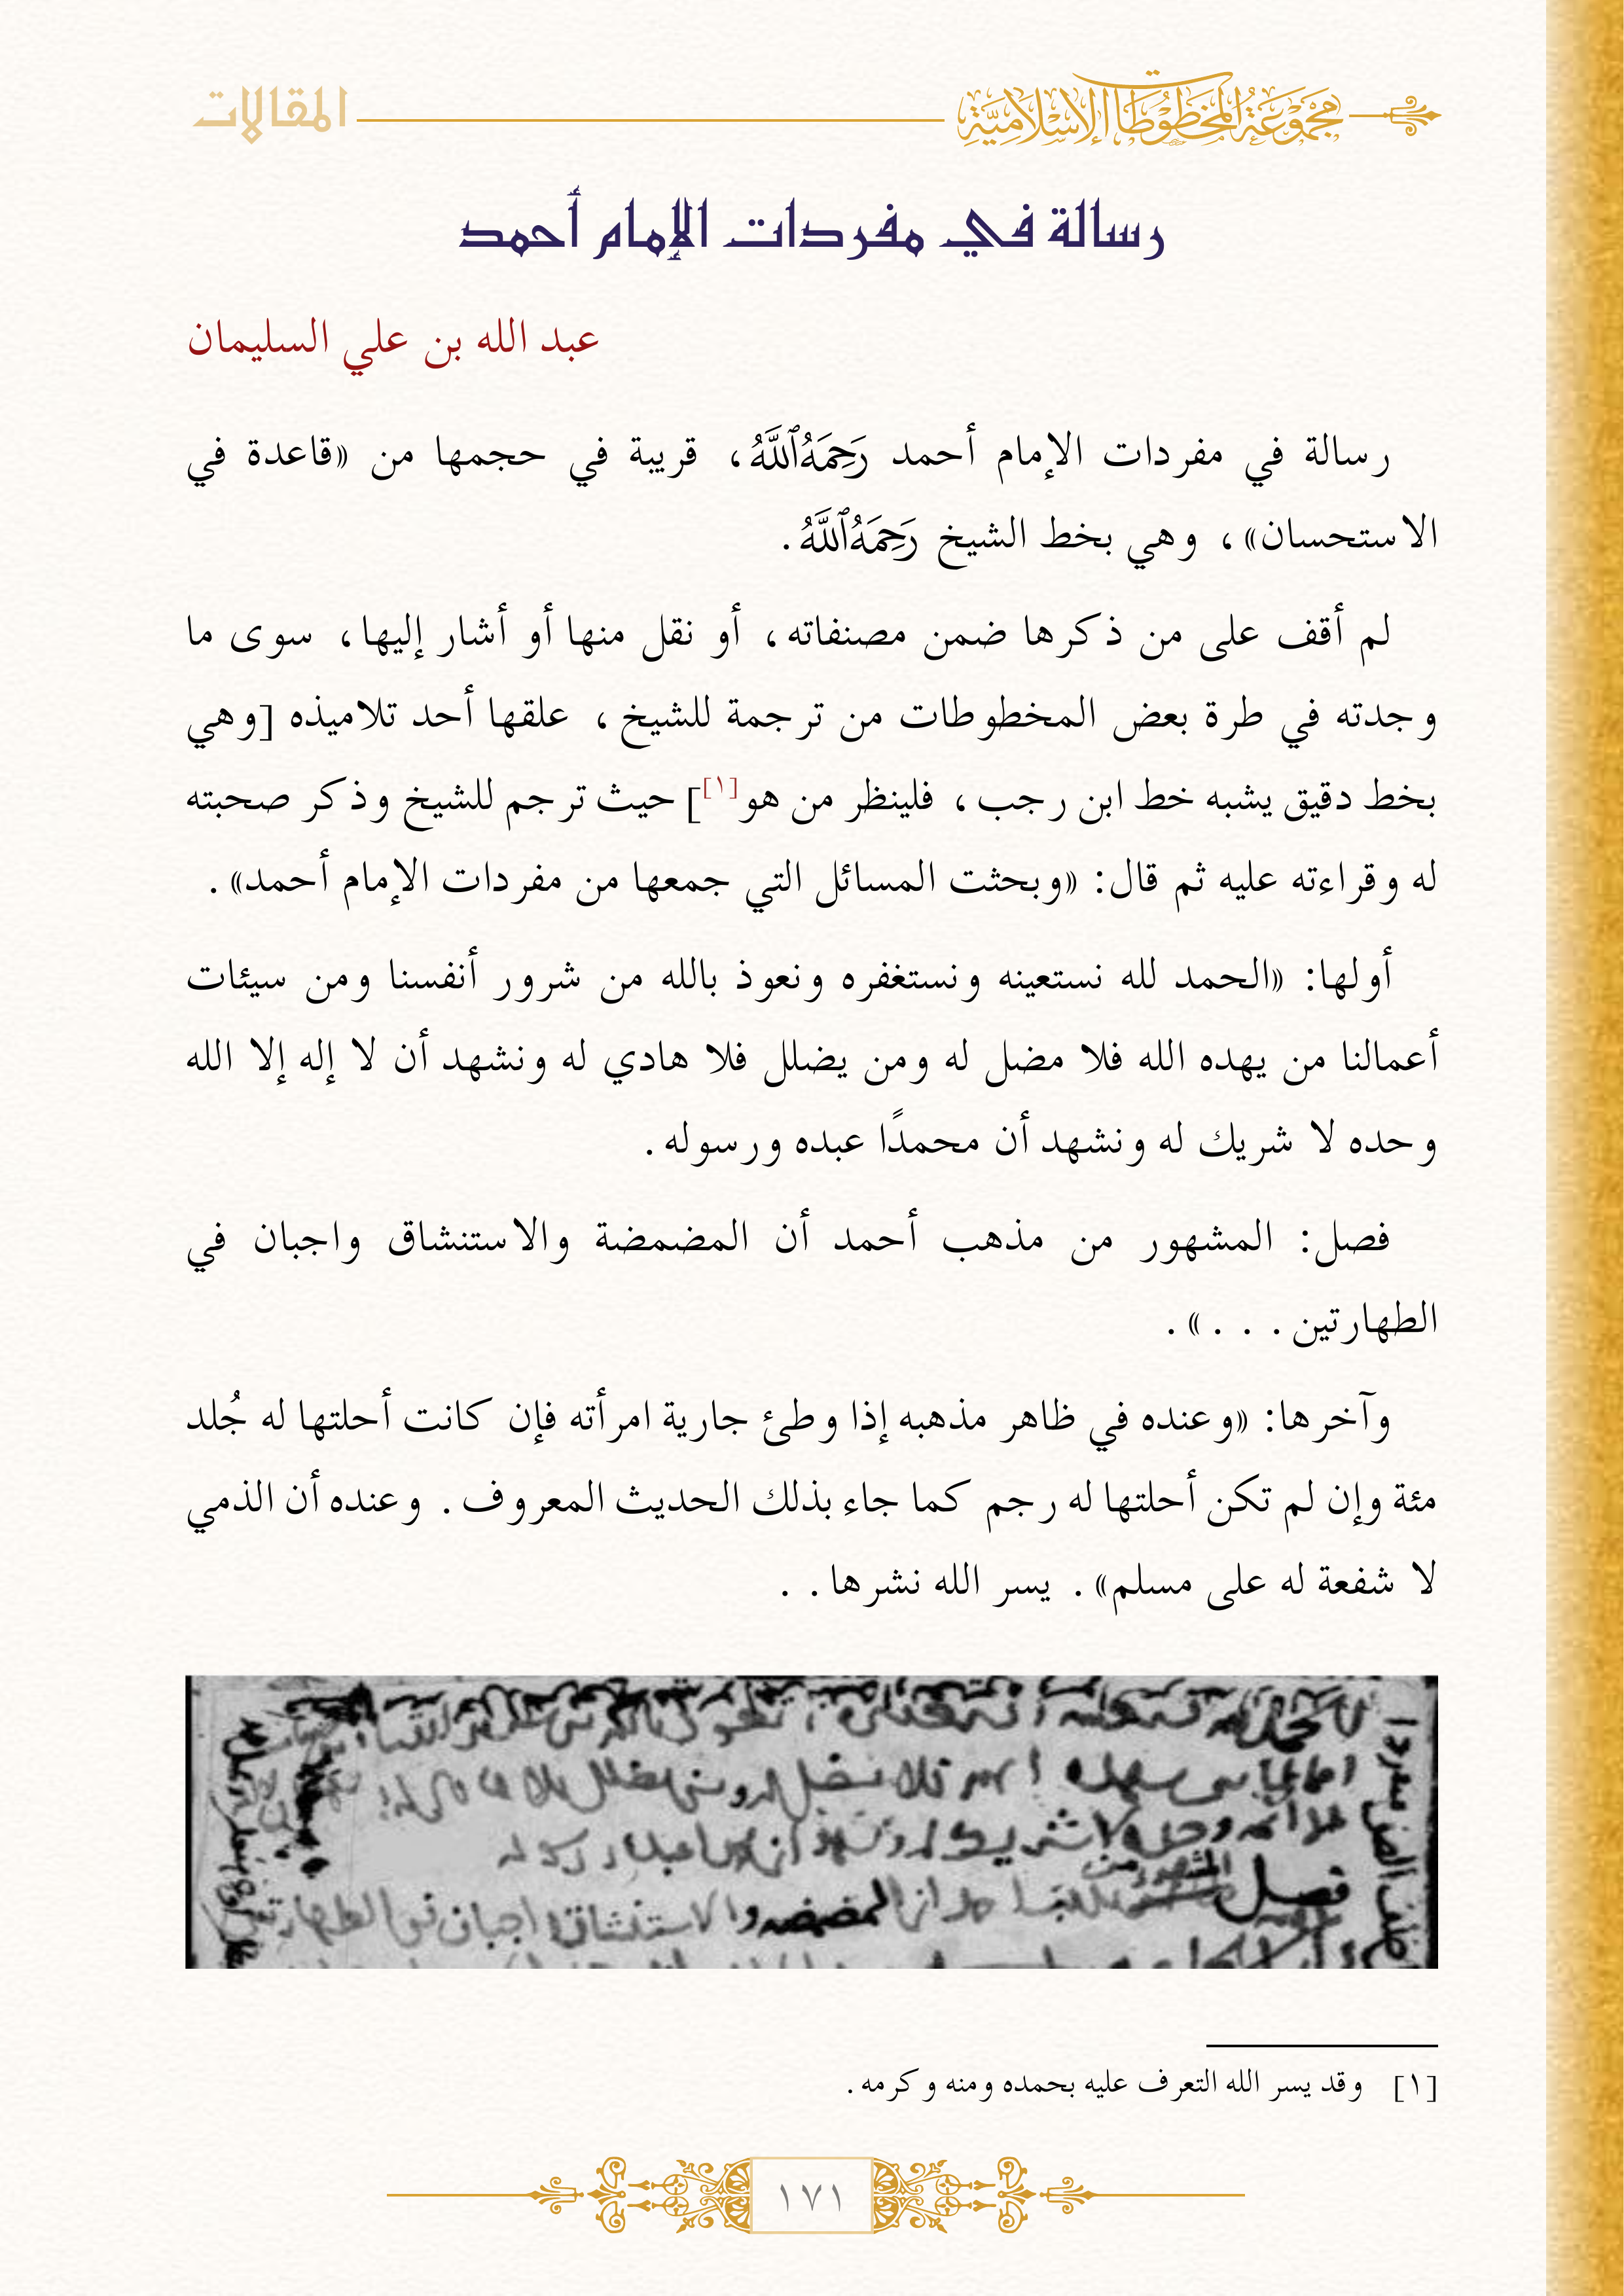 مَجْمُوعَةُ المَخْطُوطَاتِ الإِسْلَامِيَّةِ
المقالات
رسالة في مفردات الإمام أحمد
عبد الله بن علي السليمان
رسالة في مفردات الإمام أحمد رَحِمَهُ ٱللَّهُ، قريبة في حجمها من «قاعدة في
الاستحسان»، وهي بخط الشيخ رَحِمَهُ ٱللَّهُ.
لم أقف على من ذكرها ضمن مصنفاته، أو نقل منها أو أشار إليها، سوى ما
وجدته في طرة بعض المخطوطات من ترجمة للشيخ، علقها أحد تلاميذه [وهي
بخط دقيق يشبه خط ابن رجب، فلينظر من هو[١]] حيث ترجم للشيخ وذكر صحبته
له وقراءته عليه ثم قال: «وبحثت المسائل التي جمعها من مفردات الإمام أحمد».
أولها: «الحمد لله نستعينه ونستغفره ونعوذ بالله من شرور أنفسنا ومن سيئات
أعمالنا من يهده الله فلا مضل له ومن يضلل فلا هادي له ونشهد أن لا إله إلا الله
وحده لا شريك له ونشهد أن محمدًا عبده ورسوله.
فصل: المشهور من مذهب أحمد أن المضمضة والاستنشاق واجبان في
الطهارتين...».
وآخرها: «وعنده في ظاهر مذهبه إذا وطئ جارية امرأته فإن كانت أحلتها له جُلد
مئة وإن لم تكن أحلتها له رجم كما جاء بذلك الحديث المعروف. وعنده أن الذمي
لا شفعة له على مسلم». يسر الله نشرها..
وحده لا شريك له
فصل المشهور من احمد ان المضمضه والاستنشاق واجبان في الطهارتين
[١] وقد يسر الله التعرف عليه بحمده ومنه وكرمه.
١٧١